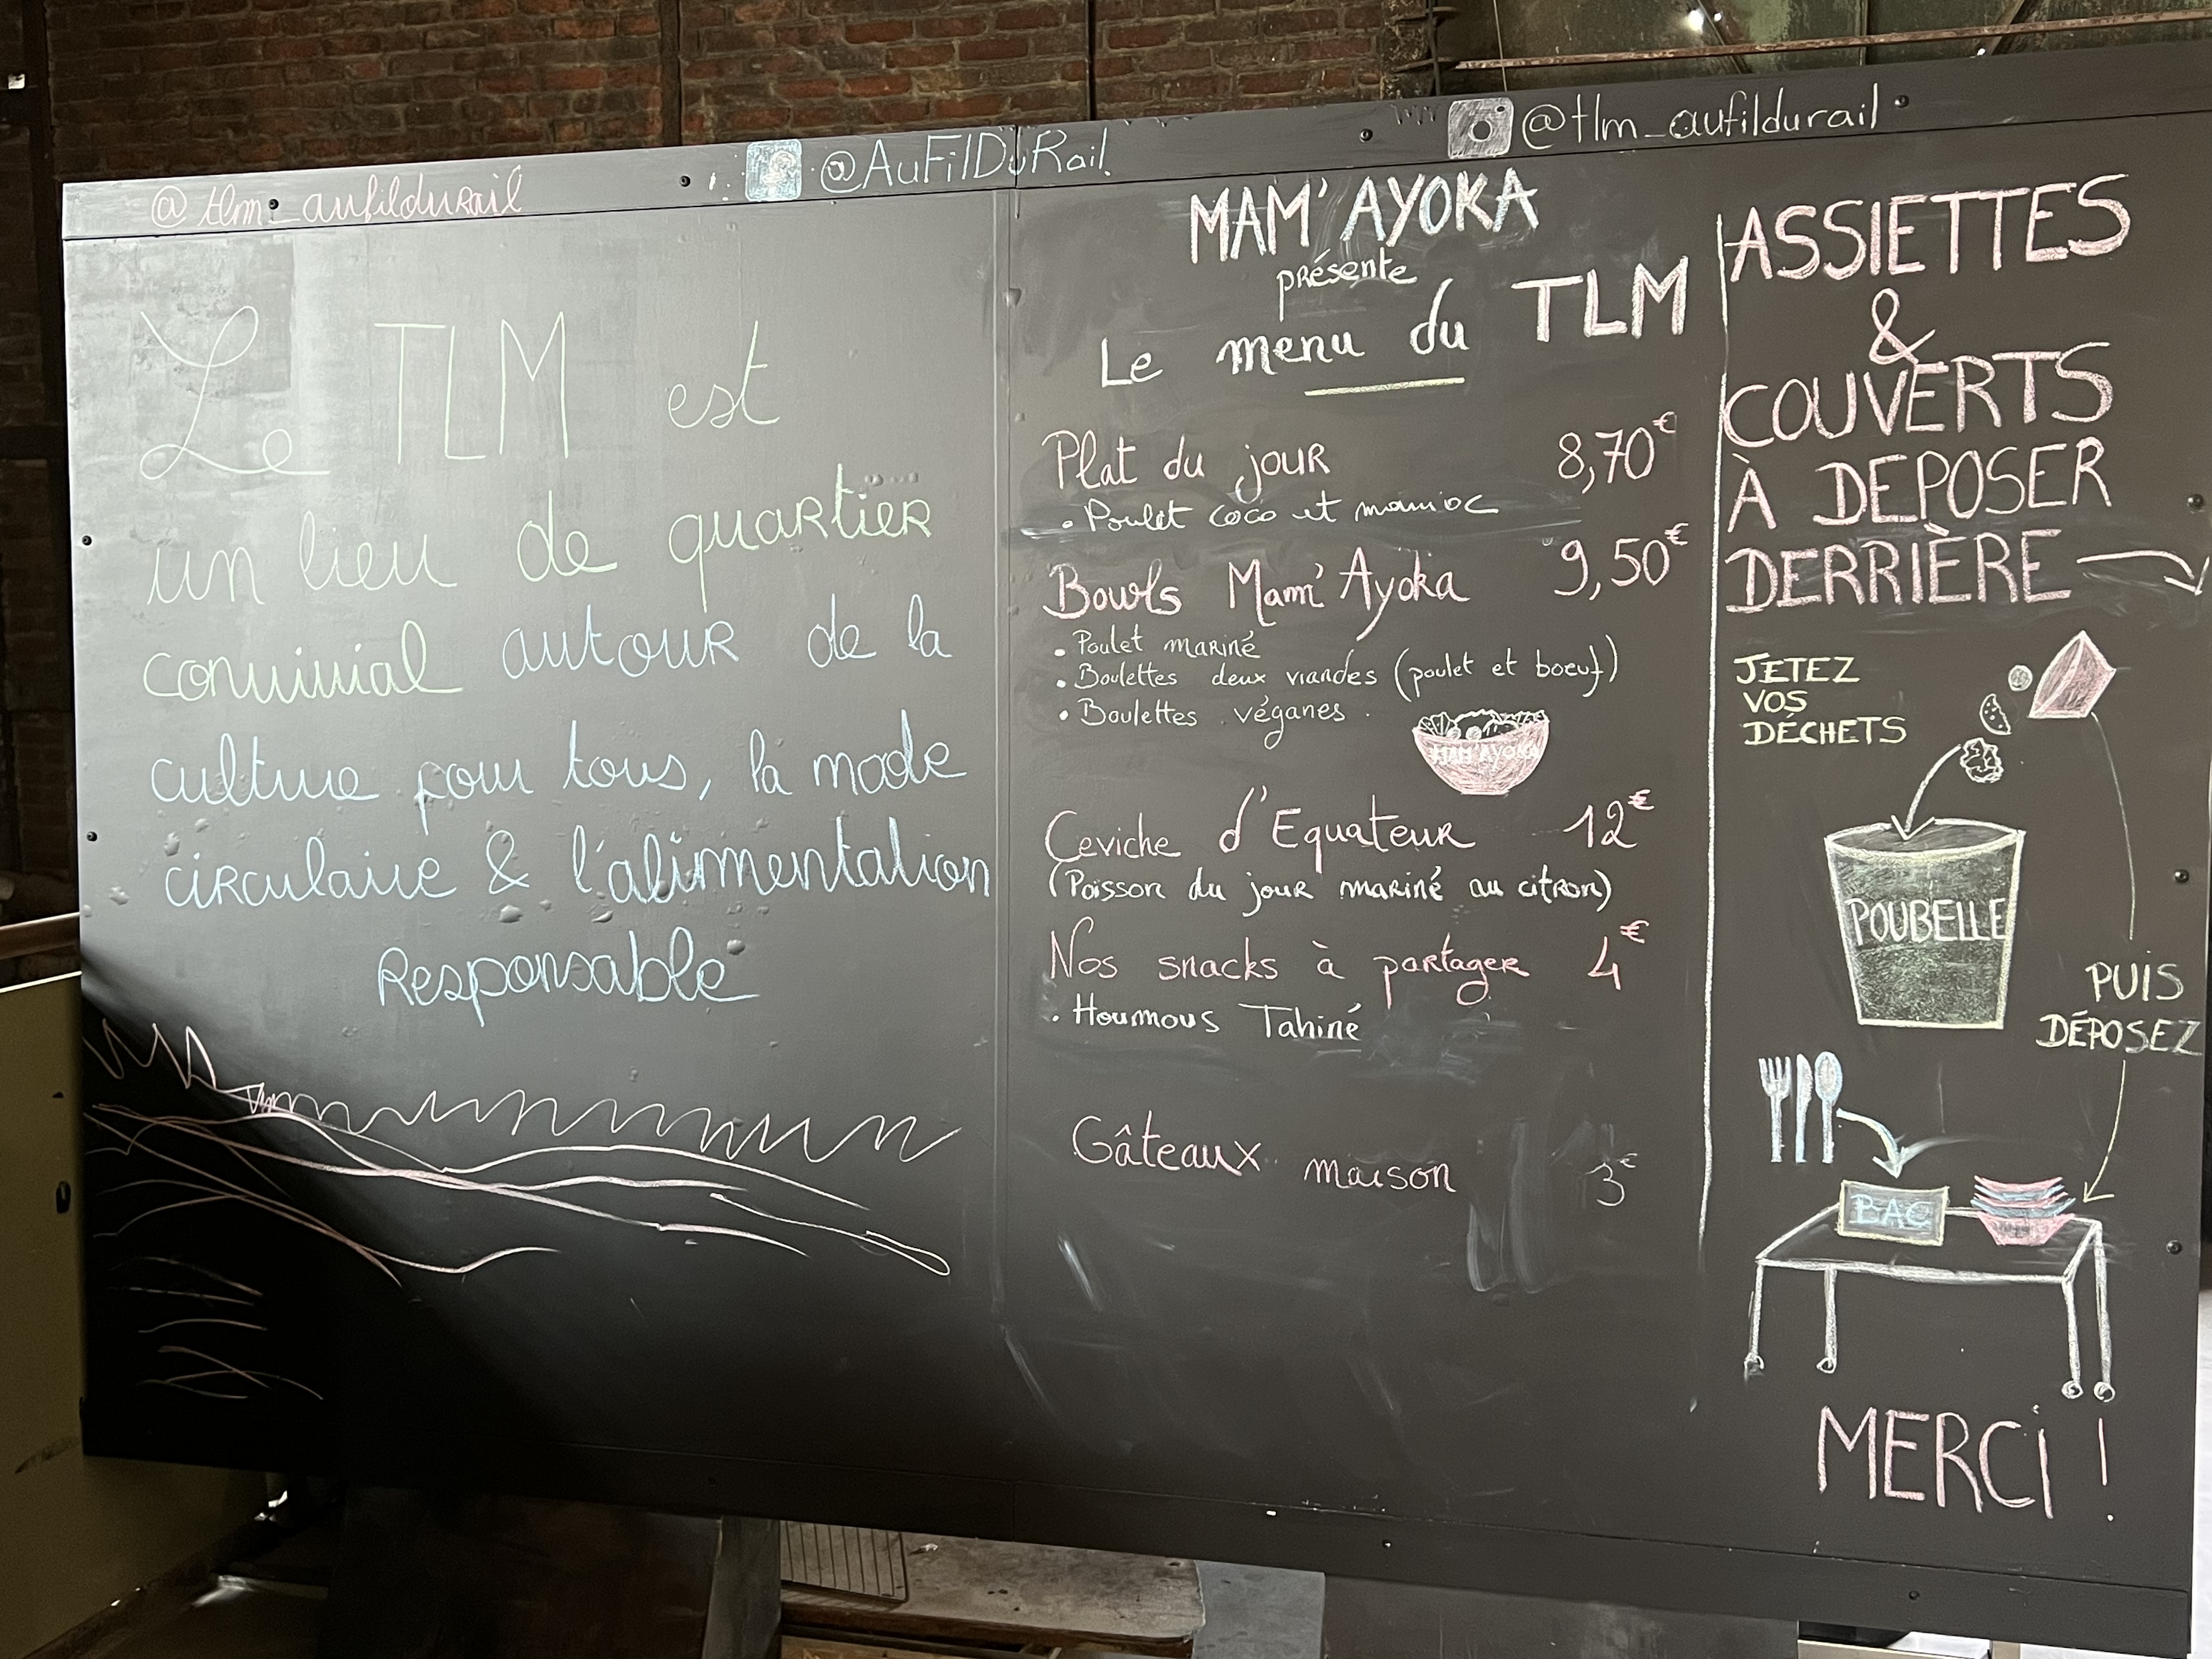 @tlm_aufildurail
@AuFilDuRail
@tlm_aufildurail
Le TLM est
un lieu de quartier
convivial autour de la
culture pour tous, la mode
circulaire & l'alimentation
Responsable
MAM'AYOKA
présente
Le menu du TLM
Plat du jour 8,70€
• Poulet coco et manioc
Bowls Mam'Ayoka 9,50€
• Poulet mariné
• Boulettes deux viandes (poulet et boeuf)
• Boulettes véganes.
MAM'AYOKA
Ceviche d'Equateur 12€
(Poisson du jour mariné au citron)
Nos snacks à partager 4€
• Houmous Tahiné
Gâteaux maison 3€
ASSIETTES
&
COUVERTS
À DEPOSER
DERRIÈRE
JETEZ
VOS
DÉCHETS
POUBELLE
PUIS
DÉPOSEZ
BAC
MERCI !